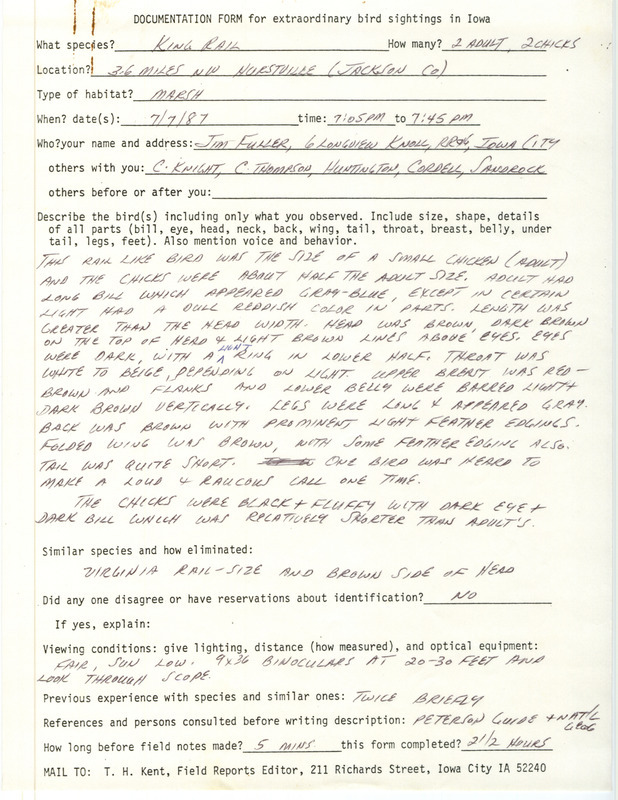 DOCUMENTATION FORM for extraordinary bird sightings in Iowa
What species? KING RAIL How many? 2 ADULT, 2 CHICKS
Location? 3.6 MILES NW HURSTVILLE (JACKSON CO)
Type of habitat? MARSH
When? date(s): 7/7/87 time: 7:05PM to 7:45 PM
Who?your name and address: JIM FULLER, 6 LONGVIEW KNOLL, RR#6, IOWA CITY
others with you: C. KNIGHT, C. THOMPSON, HUNTINGTON, CORDELL, SANDROCK
others before or after you:
Describe the bird(s) including only what you observed. Include size, shape, details
of all parts (bill, eye, head, neck, back, wing, tail, throat, breast, belly, under
tail, legs, feet). Also mention voice and behavior.
THIS RAIL LIKE BIRD WAS THE SIZE OF A SMALL CHICKEN (ADULT)
AND THE CHICKS WERE ABOUT HALF THE ADULT SIZE. ADULT HAD
LONG BILL WHICH APPEARED GRAY-BLUE, EXCEPT IN CERTAIN
LIGHT HAD A DULL REDDISH COLOR IN PARTS. LENGTH WAS
GREATER THAN THE HEAD WIDTH. HEAD WAS BROWN, DARK BROWN
ON THE TOP OF HEAD & LIGHT BROWN LINES ABOVE EYES. EYES
WERE DARK, WITH A LIGHT RING IN LOWER HALF. THROAT WAS
WHITE TO BEIGE, DEPENDING ON LIGHT. UPPER BREAST WAS RED-
BROWN AND FLANKS AND LOWER BELLY WERE BARRED LIGHT &
DARK BROWN VERTICALLY. LEGS WERE LONG & APPEARED GRAY.
BACK WAS BROWN WITH PROMINENT LIGHT FEATHER EDGINGS.
FOLDED WING WAS BROWN, WITH SOME FEATHER EDGING ALSO.
TAIL WAS QUITE SHORT. ONE BIRD WAS HEARD TO
MAKE A LOUD & RAUCOUS CALL ONE TIME.
THE CHICKS WERE BLACK & FLUFFY WITH DARK EYE &
DARK BILL WHICH WAS RELATIVELY SHORTER THAN ADULT'S.
Similar species and how eliminated:
VIRGINIA RAIL-SIZE AND BROWN SIDE OF HEAD
Did any one disagree or have reservations about identification? NO
If yes, explain:
Viewing conditions: give lighting, distance (how measured), and optical equipment:
FAIR, SUN LOW. 9X36 BINOCULARS AT 20-30 FEET AND
LOOK THROUGH SCOPE.
Previous experience with species and similar ones: TWICE BRIEFLY
References and persons consulted before writing description: PETERSON GUIDE + NAT'L
GEOG
How long before field notes made? 5 MINS this form completed? 2 1/2 HOURS
MAIL TO: T. H. Kent, Field Reports Editor, 211 Richards Street, Iowa City IA 52240